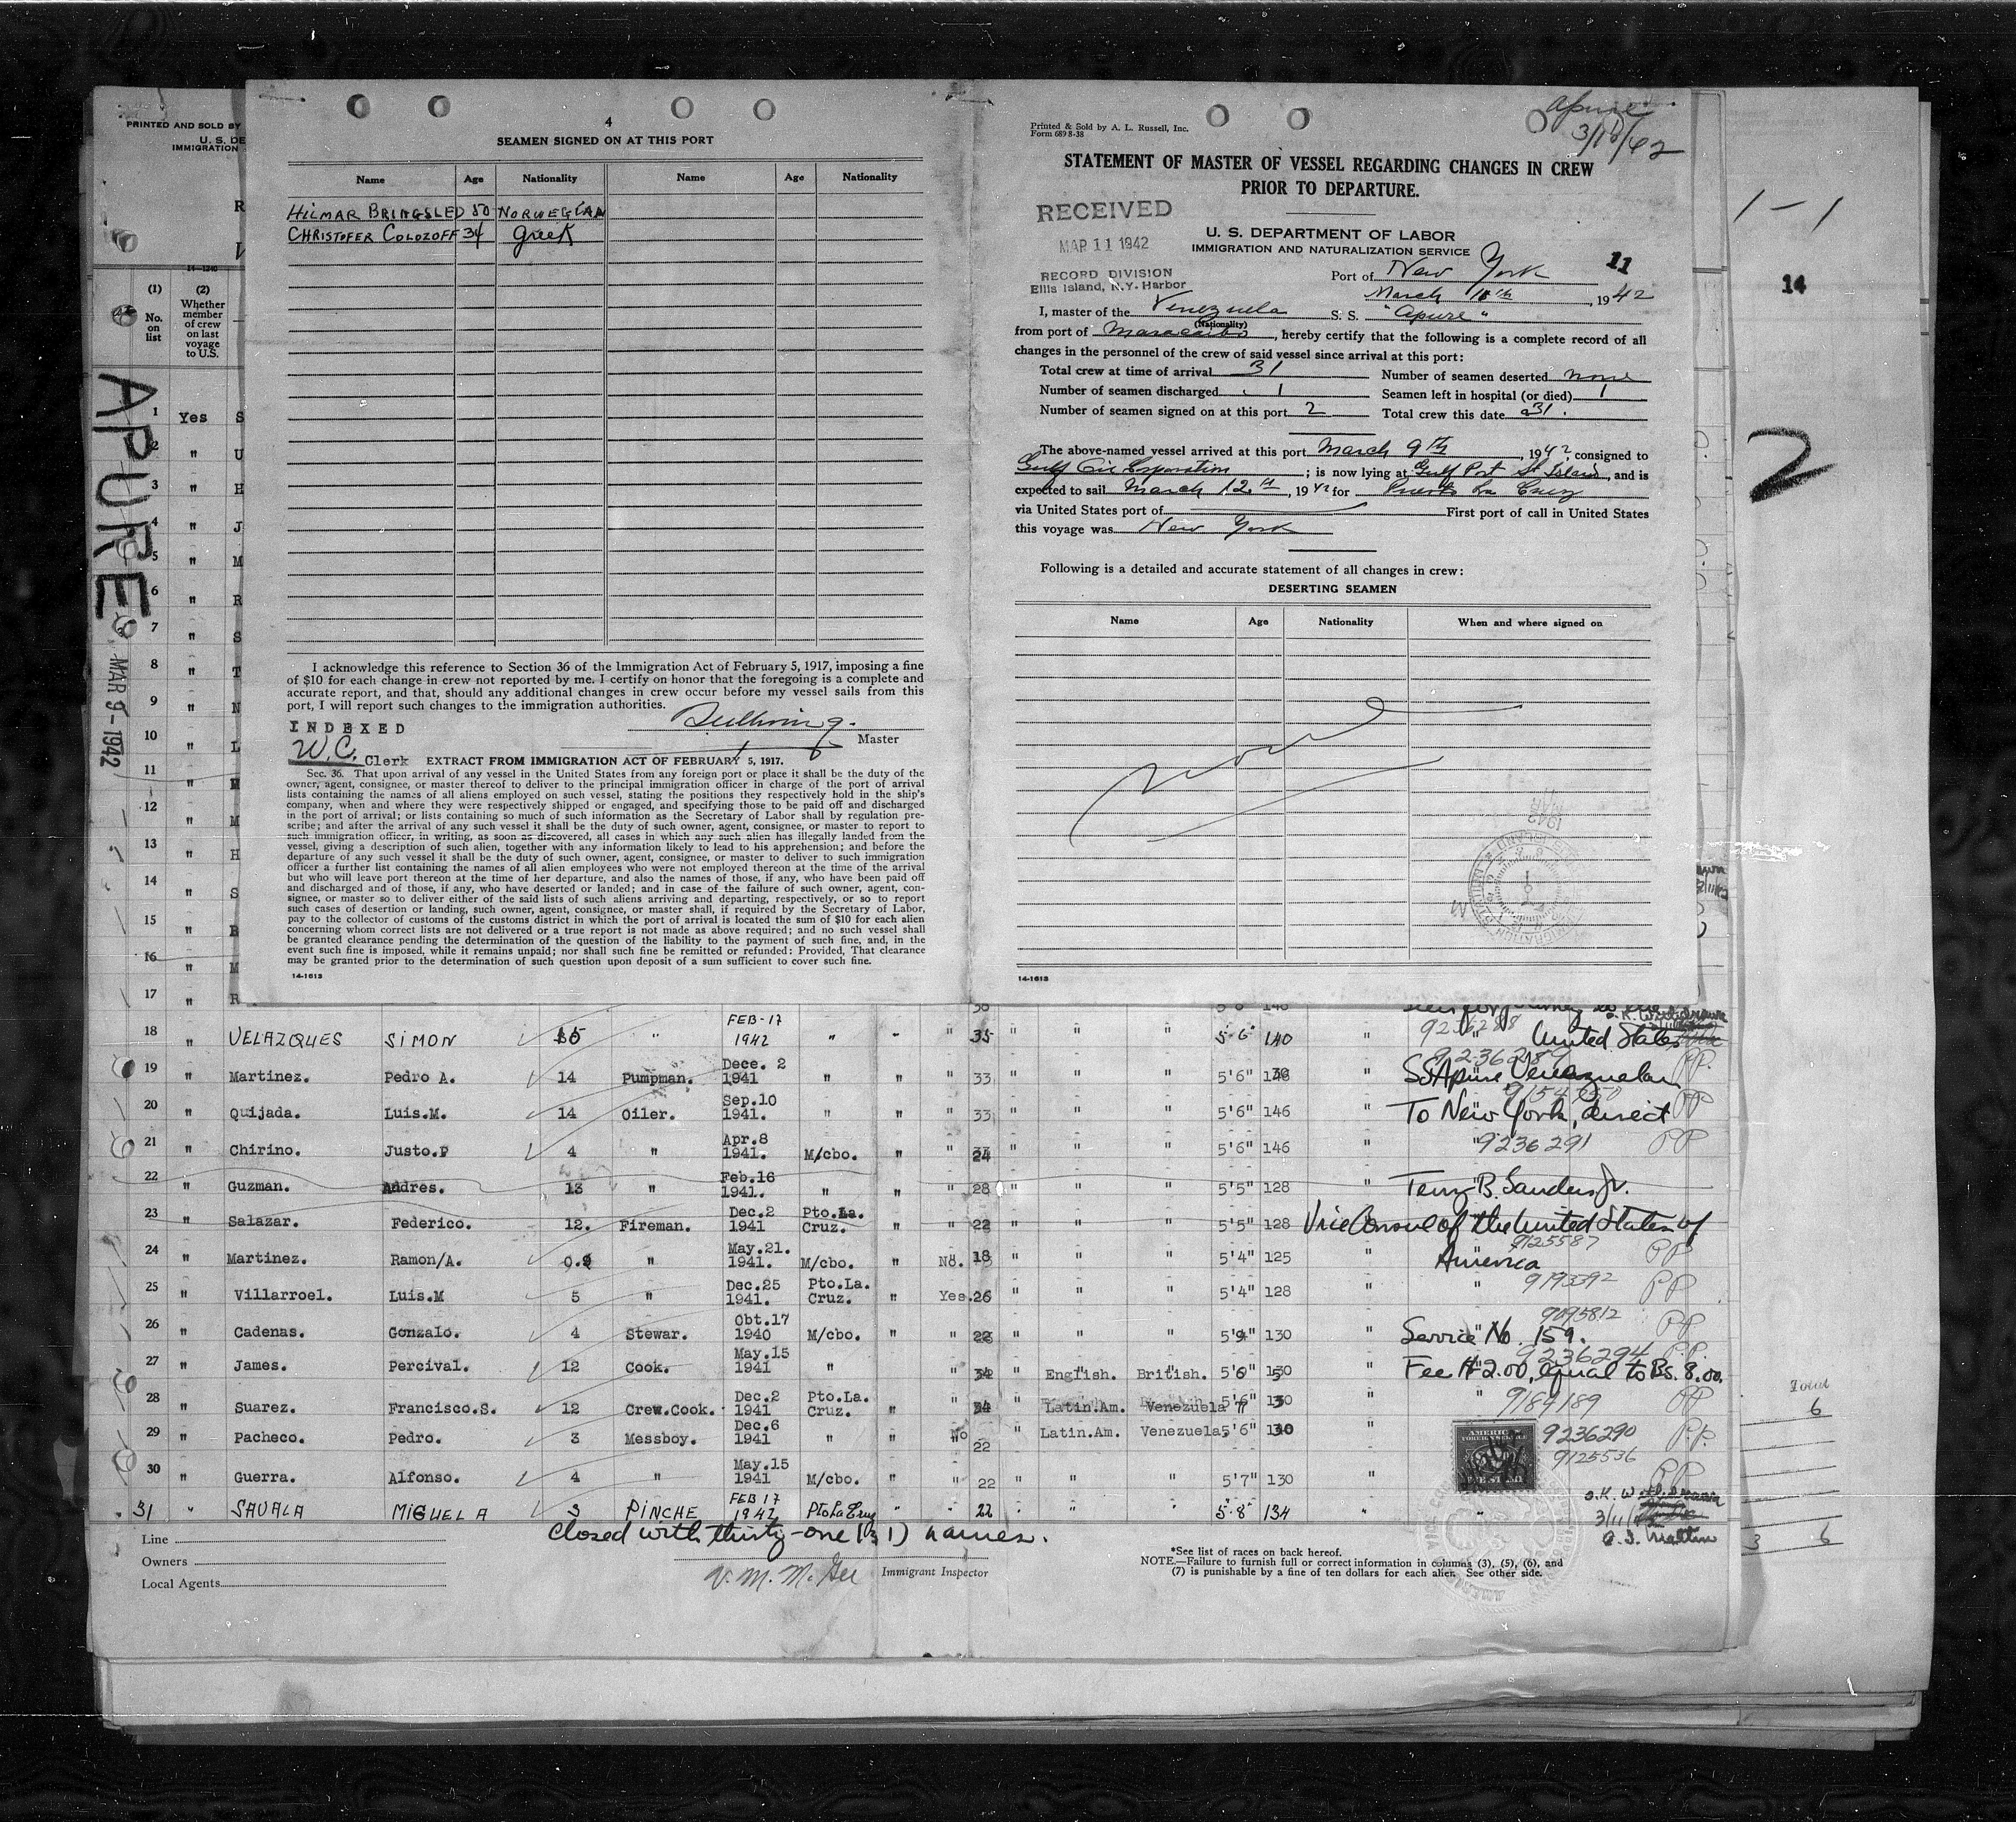 4
SEAMEN SIGNED ON AT THIS PORT
Name Age Nationality Name Age Nationality
HILMAR BRINGSLED 50 NORWEGIAN
CHRISTOFER COLOZOFF 34 Greek
I acknowledge this reference to Section 36 of the Immigration Act of February 5, 1917, imposing a fine
of $10 for each change in crew not reported by me. I certify on honor that the foregoing is a complete and
accurate report, and that, should any additional changes in crew occur before my vessel sails from this
port, I will report such changes to the immigration authorities.
INDEXED
Master
W.C. Clerk EXTRACT FROM IMMIGRATION ACT OF FEBRUARY 5, 1917.
Sec. 36. That upon arrival of any vessel in the United States from any foreign port or place it shall be the duty of the
owner, agent, consignee, or master thereof to deliver to the principal immigration officer in charge of the port of arrival
lists containing the names of all aliens employed on such vessel, stating the positions they respectively hold in the ship's
company, when and where they were respectively shipped or engaged, and specifying those to be paid off and discharged
in the port of arrival; or lists containing so much of such information as the Secretary of Labor shall by regulation pre-
scribe; and after the arrival of any such vessel it shall be the duty of such owner, agent, consignee, or master to report to
such immigration officer, in writing, as soon as discovered, all cases in which any such alien has illegally landed from the
vessel, giving a description of such alien, together with any information likely to lead to his apprehension; and before the
departure of any such vessel it shall be the duty of such owner, agent, consignee, or master to deliver to such immigration
officer a further list containing the names of all alien employees who were not employed thereon at the time of the arrival
but who will leave port thereon at the time of her departure, and also the names of those, if any, who have been paid off
and discharged and of those, if any, who have deserted or landed; and in case of the failure of such owner, agent, con-
signee, or master so to deliver either of the said lists of such aliens arriving and departing, respectively, or so to report
such cases of desertion or landing, such owner, agent, consignee, or master shall, if required by the Secretary of Labor,
pay to the collector of customs of the customs district in which the port of arrival is located the sum of $10 for each alien
concerning whom correct lists are not delivered or a true report is not made as above required; and no such vessel shall
be granted clearance pending the determination of the question of the liability to the payment of such fine, and, in the
event such fine is imposed, while it remains unpaid; nor shall such fine be remitted or refunded: Provided, That clearance
may be granted prior to the determination of such question upon deposit of a sum sufficient to cover such fine.
14-1613
Apure
3/10/42
Printed & Sold by A. L. Russell, Inc.
Form 689 8-38
STATEMENT OF MASTER OF VESSEL REGARDING CHANGES IN CREW
PRIOR TO DEPARTURE.
RECEIVED
MAR 11 1942
RECORD DIVISION
Ellis Island, N.Y. Harbor
U. S. DEPARTMENT OF LABOR
IMMIGRATION AND NATURALIZATION SERVICE
11
Port of New York
March 10th, 1942
I, master of the Venezuela S. S. "Apure"
(Nationality)
from port of Maracaibo, hereby certify that the following is a complete record of all
changes in the personnel of the crew of said vessel since arrival at this port:
Total crew at time of arrival 31 Number of seamen deserted none
Number of seamen discharged 1 Seamen left in hospital (or died) 1
Number of seamen signed on at this port 2 Total crew this date 31.
The above-named vessel arrived at this port March 9th, 1942, consigned to
Gulf Oil Corporation; is now lying at Gulf Port St Island, and is
expected to sail March 12.th, 1942 for Puerto La Cruz
via United States port of First port of call in United States
this voyage was New York
Following is a detailed and accurate statement of all changes in crew:
DESERTING SEAMEN
Name Age Nationality When and where signed on
None
14-1613
1-1
14
2
PRINTED AND SOLD BY
U. S. DE
IMMIGRATION
14-1240
(1) (2)
No. on list
Whether member of crew on last voyage to U.S.
APURE
MAR 9-1942
1 Yes S
2 " U
3 " H
4 " J
5 " M
6 " R
7 " S
8 " T
9 " N
10 " L
11 " M
12 " M
13 " H
14 " S
15 " B
16 " M
17 " R
18 " VELAZQUES SIMON 15 " FEB-17 1942 " " " 35 " " 5-6" 140 9236288 United States
19 " Martinez. Pedro A. 14 Pumpman. Dece. 2 1941 " " " 33 " " " 5'6" " 9236289 SS Apure Venezuelan PP.
20 " Quijada. Luis.M. 14 Oiler. Sep.10 1941. " " " 33 " " " 5'6" 146 " To New York, direct PP
21 " Chirino. Justo.P 4 " Apr.8 1941. M/cbo. " " 24 " " " 5'6" 146 " 9236291 PP
22 " Guzman. Andres. 13 " Feb.16 1941. " " " 28 " " " 5'5" 128 " Terry B. Sanders Jr.
23 " Salazar. Federico. 12. Fireman. Dec.2 1941 Pto.La. Cruz. " " 22 " " " 5'5" 128 Vice Consul of the United States of
24 " Martinez. Ramon/A. 0.9 " May.21. 1941. M/cbo. " No. 18 " " " 5'4" 125 " America 9125587 PP
25 " Villarroel. Luis.M 5 " Dec.25 1941. Pto.La. Cruz. " Yes. 26 " " " 5'4" 128 " 9193392 PP
26 " Cadenas. Gonzalo. 4 Stewar. Obt.17 1940 M/cbo. " " 22 " " " 5'9" 130 " Service No. 159. 9095812 PP
27 " James. Percival. 12 Cook. May.15 1941 " " 34 " English. British. 5'6 130 " 9236294 P.P. Fee $2.00, equal to Bs. 8.00.
28 " Suarez. Francisco.S. 12 Crew.Cook. Dec.2 1941 Pto.La. Cruz. " " 34 " Latin.Am. Venezuela 5'6" 130 " 9184189 PP
29 " Pacheco. Pedro. 3 Messboy. Dec.6 1941 " " No 22 " Latin.Am. Venezuela, 5'6" 130 " 9236290 PP.
30 " Guerra. Alfonso. 4 " May.15 1941 M/cbo. " " 22 " " " 5'7" 130 " 9125536 PP
31 " SAVALA MIGUEL A 3 PINCHE FEB 17 1942 Pto La Cruz " " 22 " " 5-8" 134 "
closed with thirty-one (31) names.
Total
6
3 6
Line
Owners
Local Agents
Immigrant Inspector
*See list of races on back hereof.
NOTE.—Failure to furnish full or correct information in columns (3), (5), (6), and
(7) is punishable by a fine of ten dollars for each alien. See other side.